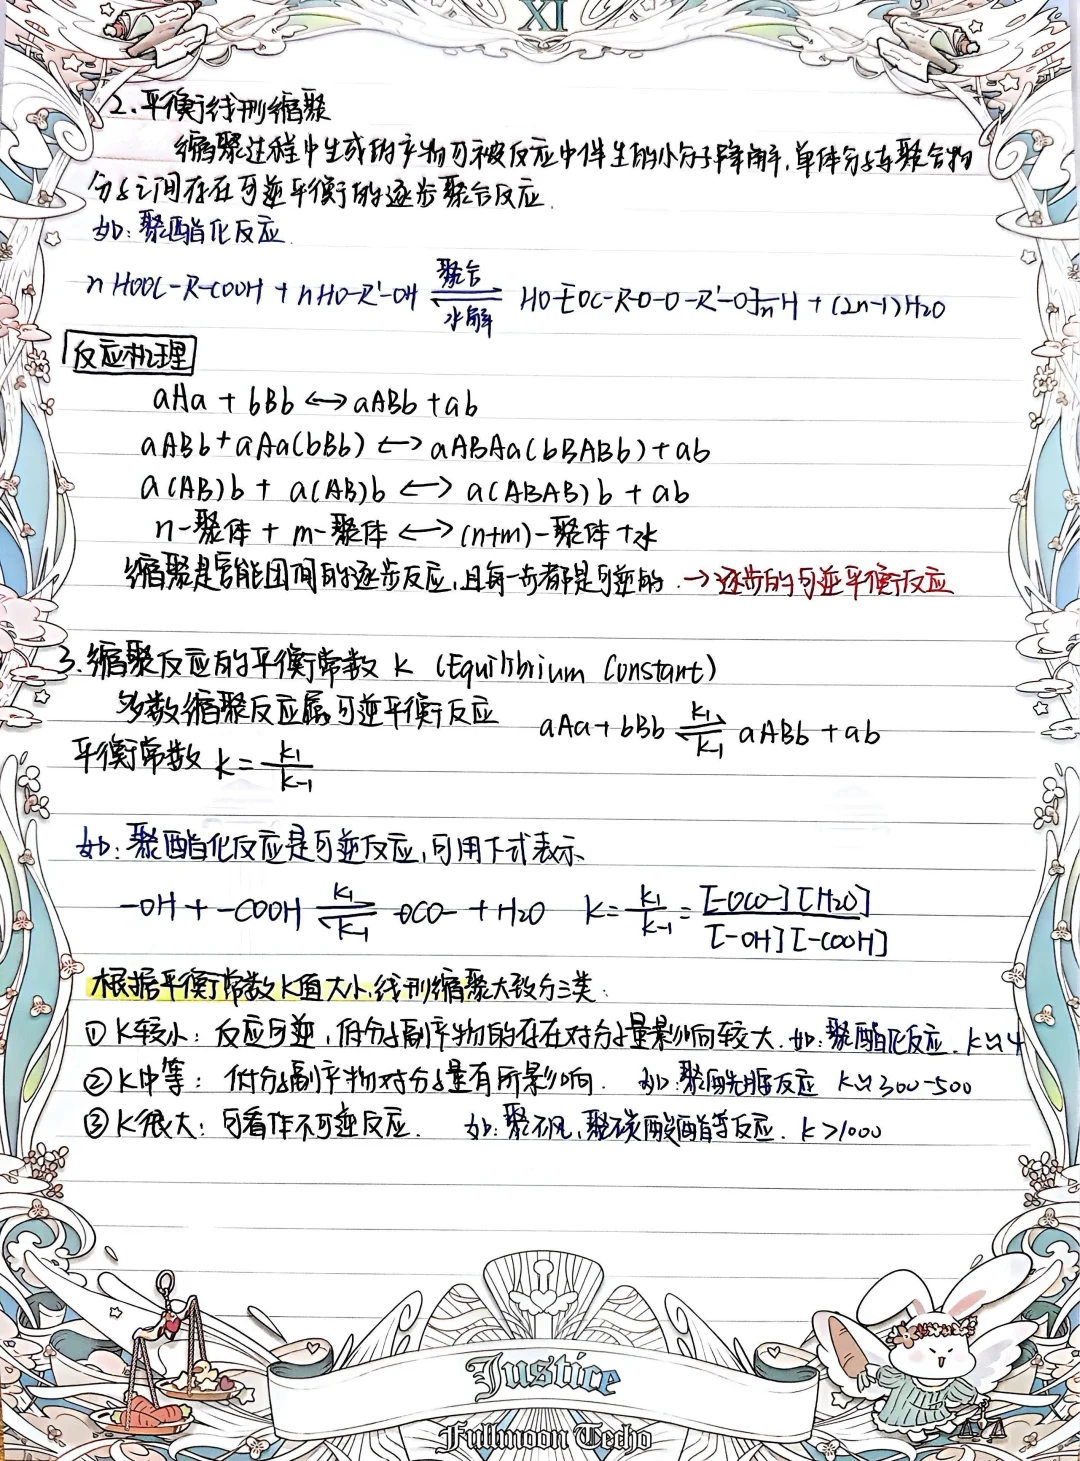 XI
2、平衡线型缩聚
缩聚过程中生成的产物可被反应中伴生的小分子降解,单体分子与聚合物
分子之间存在可逆平衡的逐步聚合反应.
如:聚酯化反应.
n HOOC-R-COOH + nHO-R'-OH ⇌ HO-[OC-R-O-O-R'-O]n-H + (2n-1)H2O
聚合
水解
反应机理
aAa + bBb ⟷ aABb + ab
aABb + aAa(bBb) ⟷ aABAa(bBABb) + ab
a(AB)b + a(AB)b ⟷ a(ABAB)b + ab
n-聚体 + m-聚体 ⟷ (n+m)-聚体 +水
缩聚是官能团间的逐步反应,且每一步都是可逆的. →逐步的可逆平衡反应
3.缩聚反应的平衡常数 K (Equilibrium Constant)
多数缩聚反应属可逆平衡反应 aAa + bBb ⇌ aABb + ab
k1
k-1
平衡常数 K = k1/k-1
如:聚酯化反应是可逆反应,可用下式表示
-OH + -COOH ⇌ -OCO- + H2O K = k1/k-1 = [-OCO-][H2O]/[-OH][-COOH]
k1
k-1
根据平衡常数K值大小,线型缩聚大致分三类:
①K较小: 反应可逆,低分子副产物的存在对分子量影响较大. 如:聚酯化反应. K≈4
②K中等: 低分子副产物对分子量有所影响. 如:聚酰胺反应 K≈300-500
③K很大: 可看作不可逆反应. 如:聚砜、聚碳酸酯等反应. K>1000
Justice
Fullmoon Techo